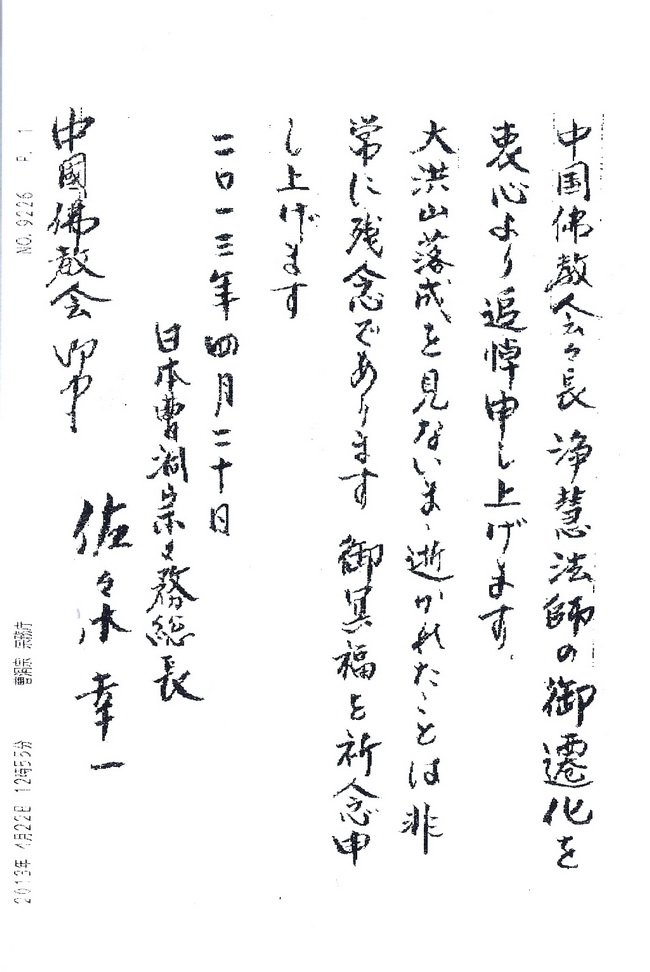 中国佛教会々長 浄慧法師の御遷化を
衷心より追悼申し上げます。
大洪山落成を見ないまゝ逝かれたことは非
常に残念であります 御冥福を祈念申
し上げます
二〇一三年四月二十日
日本曹洞宗々務総長
佐々木幸一
中國佛教会 御中
2013年 4月22日 12時55分 曹洞宗 宗務庁 NO. 9226 P. 1